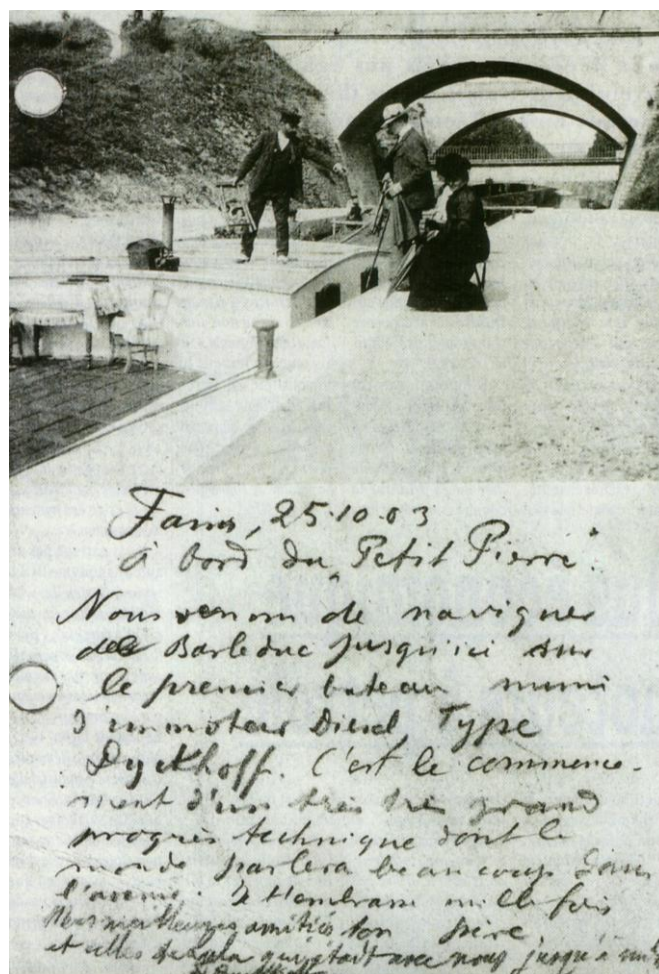 Fains, 25·10·03
à bord du "Petit Pierre".
Nous venons de naviguer
de Barleduc jusqu'ici sur
le premier bateau muni
d'un moteur Diesel, Type
Dyckhoff. C'est le commence-
ment d'un très très grand
progrès technique dont le
monde parlera beaucoup dans
l'avenir. Je t'embrasse mille fois
Mes meilleures amitiés ton père
et celles de qui était avec nous jusqu'à